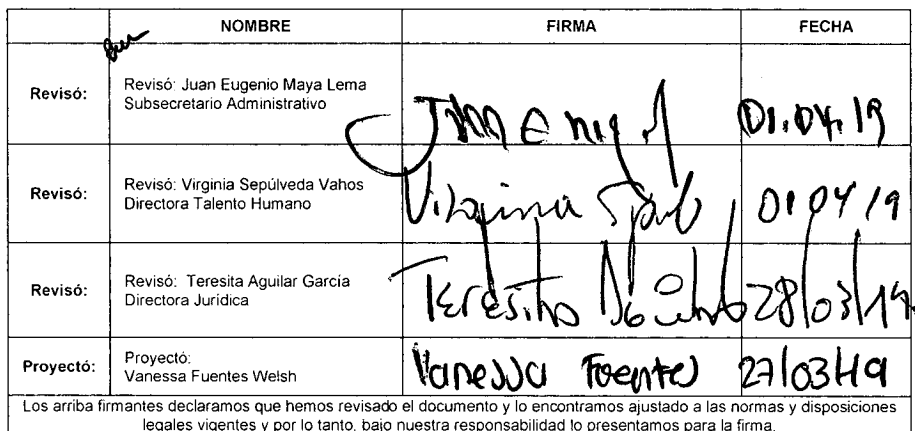 NOMBRE FIRMA FECHA
Revisó: Revisó: Juan Eugenio Maya Lema
Subsecretario Administrativo
01.04.19
Revisó: Revisó: Virginia Sepúlveda Vahos
Directora Talento Humano
Virginia 01 04 19
Revisó: Revisó: Teresita Aguilar García
Directora Jurídica
Teresita 28/03/19
Proyectó: Proyectó:
Vanessa Fuentes Welsh
Vanessa Fuentes 27/03/19
Los arriba firmantes declaramos que hemos revisado el documento y lo encontramos ajustado a las normas y disposiciones
legales vigentes y por lo tanto, bajo nuestra responsabilidad lo presentamos para la firma.